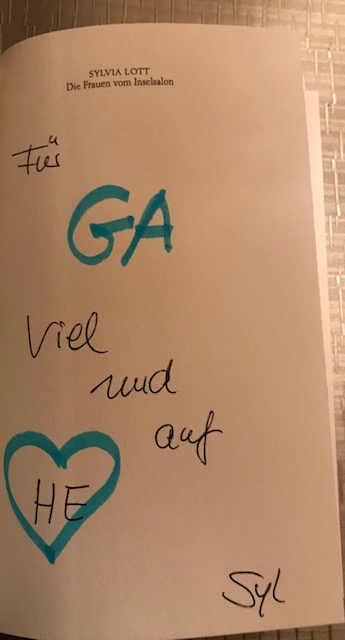 SYLVIA LOTT
Die Frauen vom Inselsalon
Für
GA
Viel
und
auf
HE
Syl